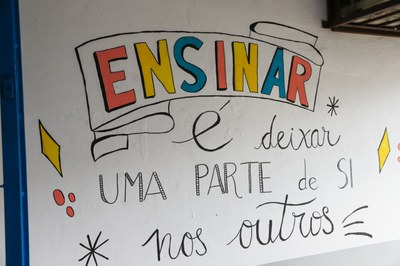 ENSINAR
é deixar
UMA PARTE de SI
nos outros